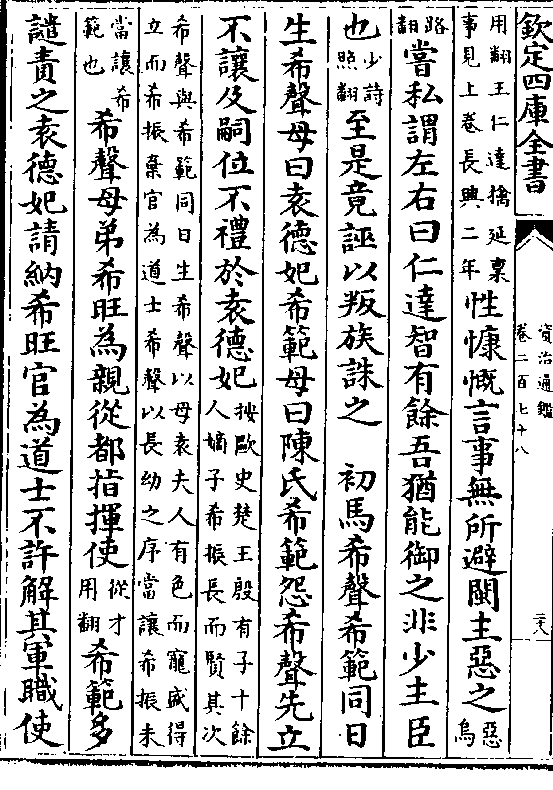 欽定四庫全書
資治通鑑
卷二百七十八
二八
用翻王仁達擒延稟
事見上卷長興二年
性慷慨言事無所避閩主惡之
惡烏
路翻
嘗私謂左右曰仁達智有餘吾猶能御之非少主臣
也
少詩照翻
至是竟誣以叛族誅之 初馬希聲希範同日
生希聲母曰袁德妃希範母曰陳氏希範怨希聲先立
不讓及嗣位不禮於袁德妃
按歐史楚王殷有子十餘
人嫡子希振長而賢其次
希聲與希範同日生希聲以母袁夫人有色而寵盛得
立而希振棄官為道士希聲以長幼之序當讓希振未
當讓希
範也
希聲母弟希旺為親從都指揮使
從才
用翻
希範多
譴責之袁德妃請納希旺官為道士不許解其軍職使